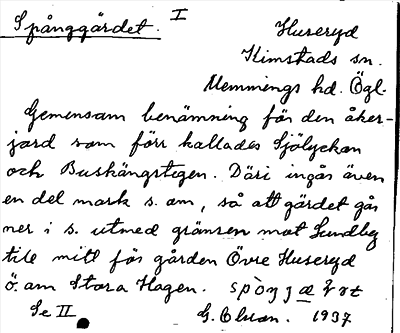 Spånggärdet. I Huseryd
Kimstads sn.
Memmings hd. Ögl.
Gemensam benämning för den åker-
jord som förr kallades Sjölyckan
och Buskängstegen. Däri ingås även
en del mark s. om, så att gärdet går
ner i s. utmed gränsen mot Lundby
till mitt för gården Övre Huseryd
ö. om Stora Hagen.
Se II G. 1937